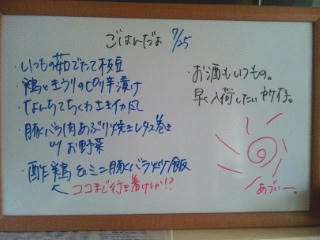 ごはんだよ 7/25
・いつもの茹でたて枝豆
・鶏ときゅうりのピリ辛漬け
・なんちて ちくわ
・豚バラ肉あぶり焼きレタス巻き
〃 お野菜
・酢鶏 & ミニ豚バラ炒飯
ココまで行き着けるか!?
お酒もいつもの。
早く入荷したい
あづいー。